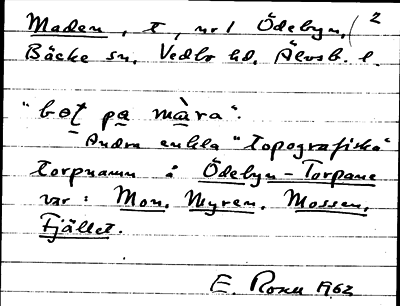 Maden, t, nr 1 Ödebyn, ( 2
Bäcke sn, Vedbo hd, Älvsb. l.
"bot pa màra".
Andra enkla "topografiska"
torpnamn i Ödebyn-Torpane
var: Mon, Myren, Mossen,
Fjället.
E. Rosu 1962